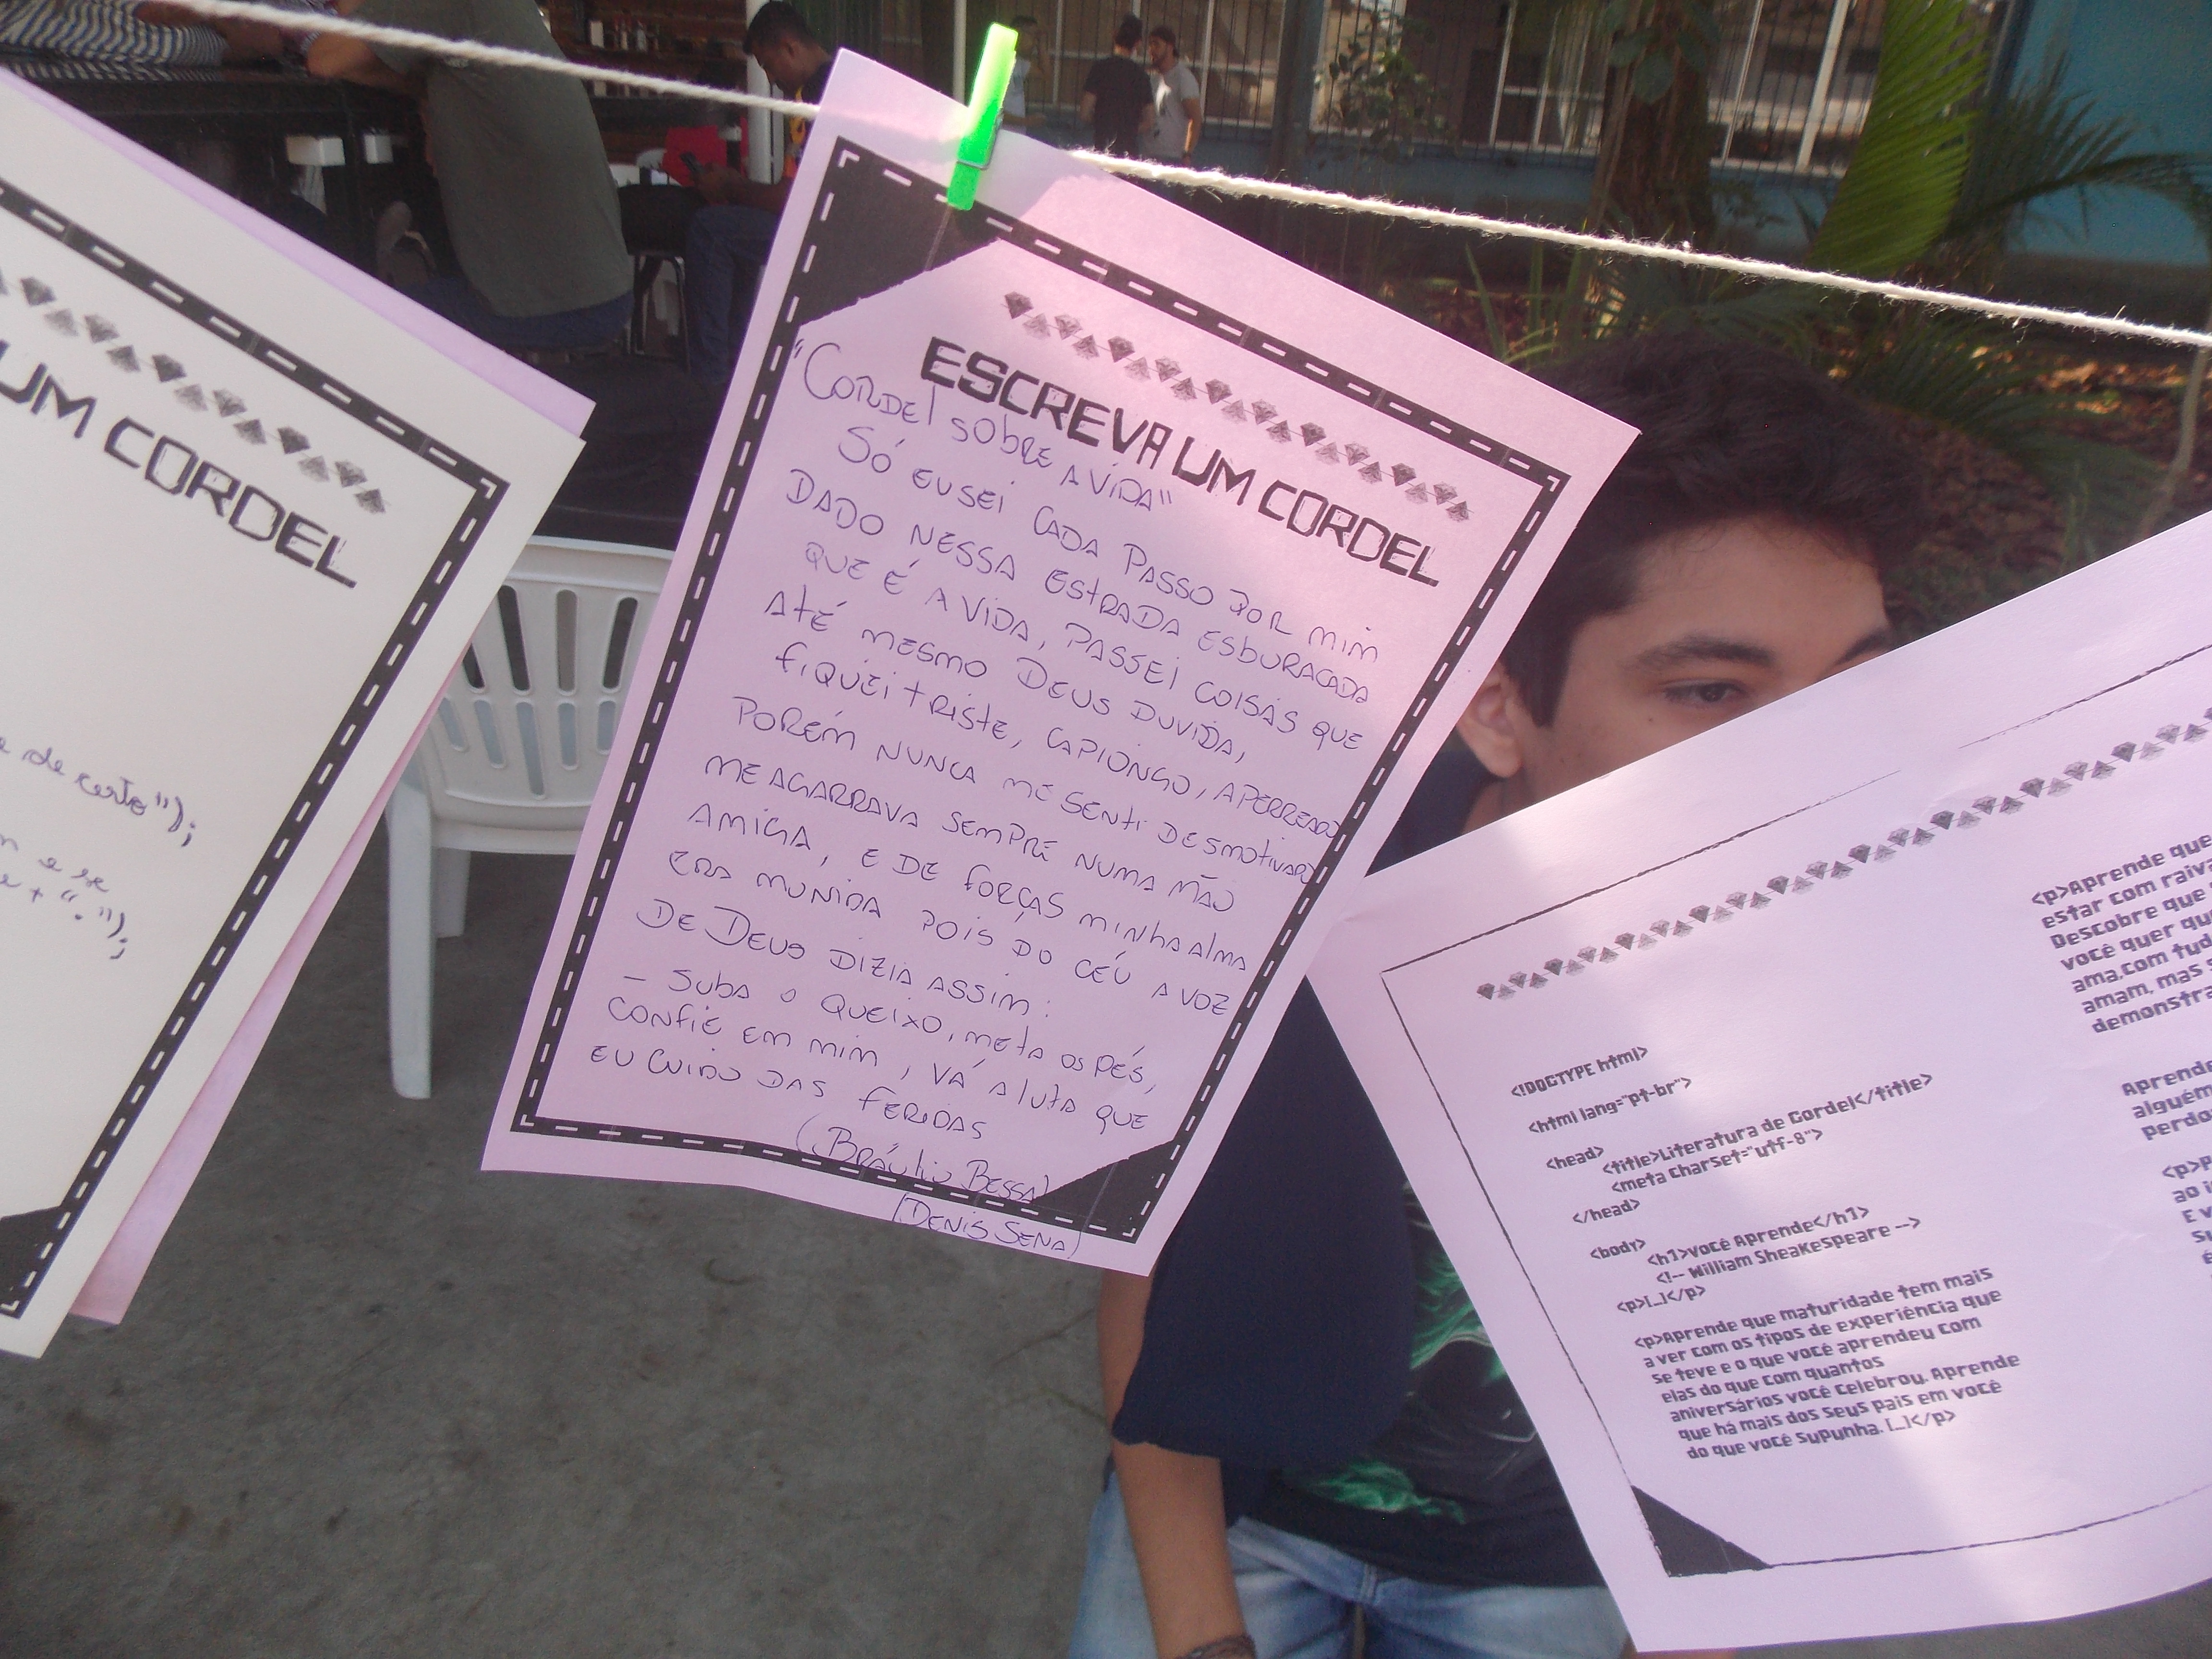 UM CORDEL
de certo");
e se
+ ".");
ESCREVA UM CORDEL
"CORDEL SOBRE A VIDA"
SÓ EU SEI CADA PASSO POR MIM
DADO NESSA ESTRADA ESBURACADA
QUE É A VIDA, PASSEI COISAS QUE
ATÉ MESMO DEUS DUVIDA,
FIQUEI TRISTE, CAPIONGO, APERREADO
PORÉM NUNCA ME SENTI DESMOTIVADO
ME AGARRAVA SEMPRE NUMA MÃO
AMIGA, E DE FORÇAS MINHA ALMA
ERA MUNIDA POIS DO CÉU A VOZ
DE DEUS DIZIA ASSIM:
- SUBA O QUEIXO, META OS PÉS,
CONFIE EM MIM, VÁ A LUTA QUE
EU CUIDO DAS FERIDAS
(BRÁULIO BESSA)
(DENIS SENA)
<!DOCTYPE html>
<html lang="pt-br">
<head>
<title>Literatura de Cordel</title>
<meta charset="utf-8">
</head>
<body>
<h1>Você Aprende</h1>
<!-- William Sheakespeare -->
<p>[...]</p>
<p>Aprende que maturidade tem mais
a ver com os tipos de experiência que
se teve e o que você aprendeu com
elas do que com quantos
aniversários você celebrou. Aprende
que há mais dos seus pais em você
do que você supunha. [...]</p>
<p>Aprende que
estar com raiva
Descobre que
você quer qu
ama, com tud
amam, mas
demonstra
Aprende
alguém
perdo
<p>P
ao i
E v
su
é